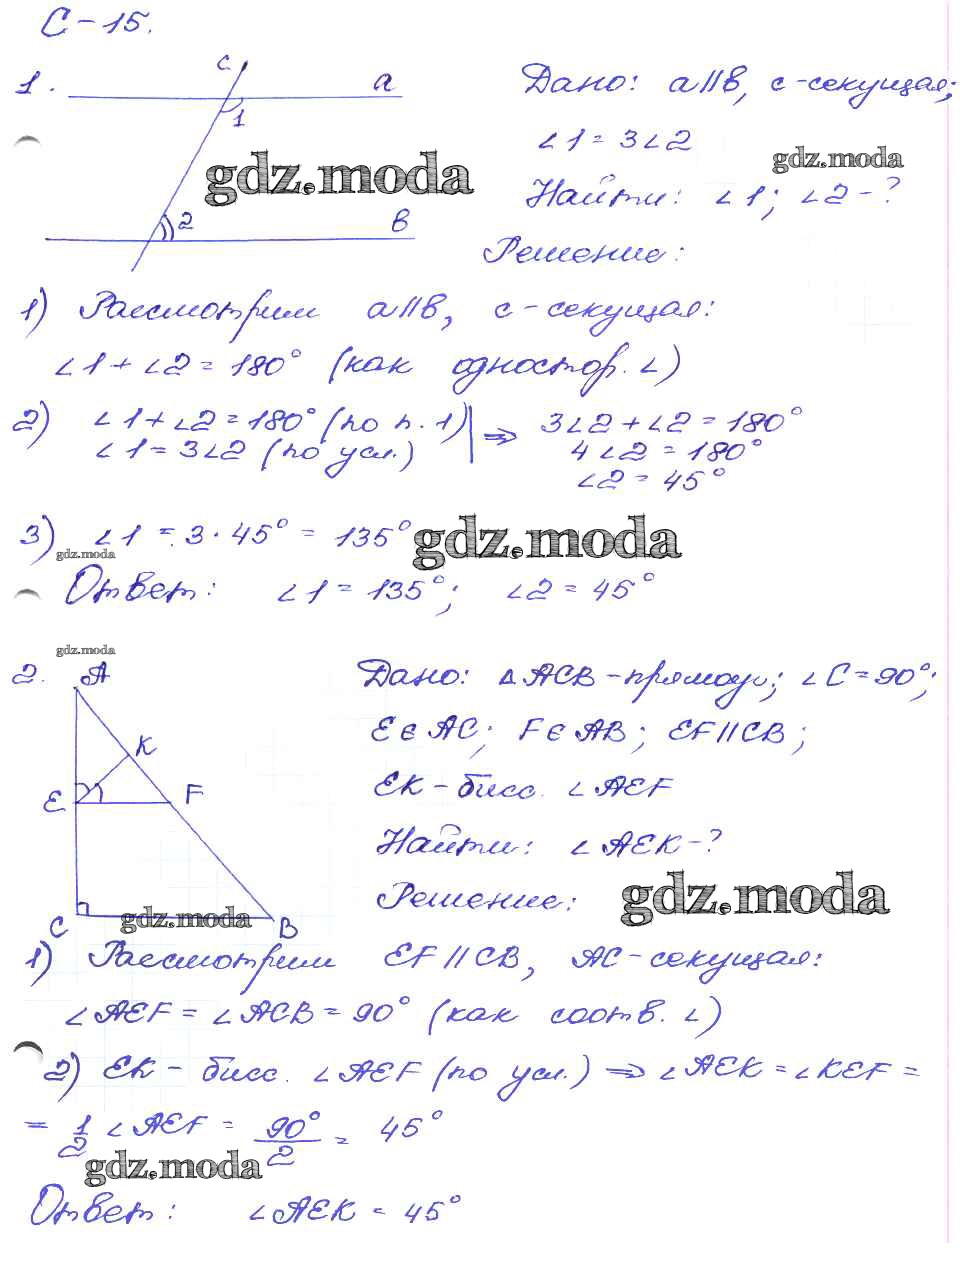 С-15.
1.
c
a
1
2
в
Дано: a||в, c-секущая;
∠1 = 3∠2
gdz.moda
gdz.moda
Найти: ∠1; ∠2-?
Решение:
1) Рассмотрим a||в, c-секущая:
∠1+∠2 = 180° (как одностор. ∠)
2) ∠1+∠2 = 180° (по п. 1) | ⇒ 3∠2+∠2 = 180°
∠1 = 3∠2 (по усл.) 4∠2 = 180°
∠2 = 45°
3) ∠1 = 3·45° = 135°
gdz.moda
gdz.moda
Ответ: ∠1 = 135°; ∠2 = 45°
gdz.moda
2.
A
K
E
F
C
B
Дано: △ACB-прямоуг; ∠C=90°;
E∈AC; F∈AB; EF||CB;
EK-бисс. ∠AEF
Найти: ∠AEK-?
Решение:
gdz.moda
gdz.moda
1) Рассмотрим EF||CB, AC-секущая:
∠AEF = ∠ACB = 90° (как соотв. ∠)
2) EK- бисс. ∠AEF (по усл.) ⇒ ∠AEK = ∠KEF =
= 1/2 ∠AEF = 90°/2 = 45°
gdz.moda
Ответ: ∠AEK = 45°